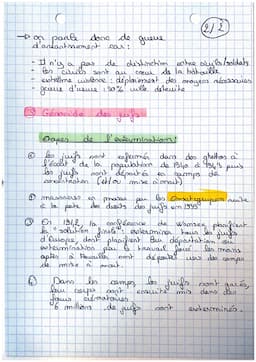 2/2
→ on parle donc de guerre
d'anéantissement car:
- Il n'y a pas de distinction entre civils/soldats
- les civils sont au cœur de la bataille
- extrême violence: déploiement des moyens nécessaires
- guerre d'usure: 90% ville détruite
Génocide des juifs
étapes de l'extermination:
les juifs sont enfermés dans des ghettos à
l'écart de la population de 1940 à 1943 puis
les juifs sont déportés en camps de
concentration (et/ou mise à mort)
massacres en masse par les Einsatzgruppen suite
à la perte des droits des juifs en 1935
③ En 1942, la conférence de Wannsee planifient
la "solution finale": exterminer tous les juifs
d'Europe, dont planifient leur déportation ou
extermination par le travail forcé. les moins
aptes à travailler sont déportés vers des camps
de mise à mort.
④ Dans les camps, les juifs sont gazés,
leur corps sont ensuite mis dans des
fours crématoires.
6 millions de juifs sont exterminés.